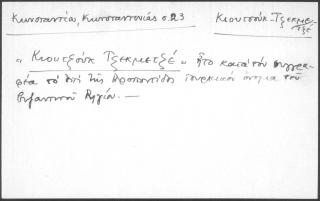 Κωνσταντία, Κωνσταντινιάς σ. 23
Κιουτσούκ-Τζεκμε-
τζέ
« Κιουτζούκ Τζεκμετζέ » ἦτο κατὰ τὸν συγγρα-
φέα τὸ ἐπὶ τῆς Προποντίδος τουρκικὸν ὄνομα τοῦ
Βυζαντινοῦ Ρηγίου. —